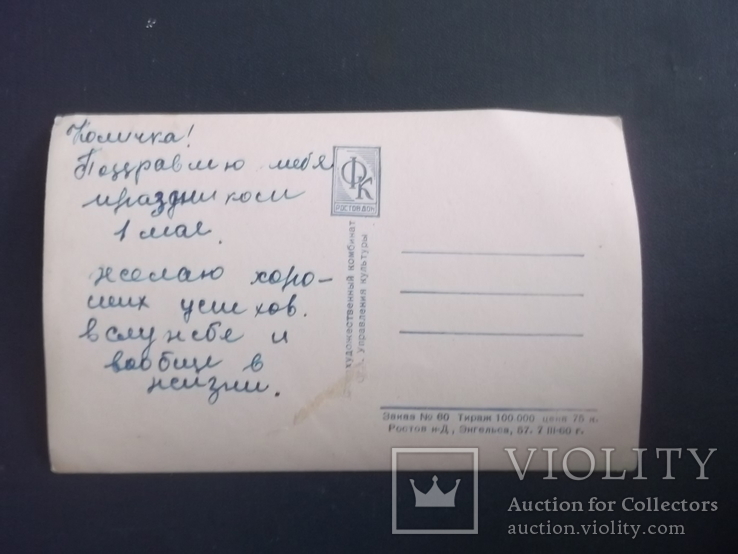 Количка!
Поздравлю тебя
праздником
1 мая.
желаю хоро-
ших успехов.
в службе и
вообще в
жизни.
ФК
РОСТОВ ДОН
художественный комбинат
Управления культуры
Заказ № 60 Тираж 100.000 цена 75 к.
Ростов н-Д, Энгельса, 57. 7 III-60 г.
VIOLITY
Auction for Collectors
auction.violity.com